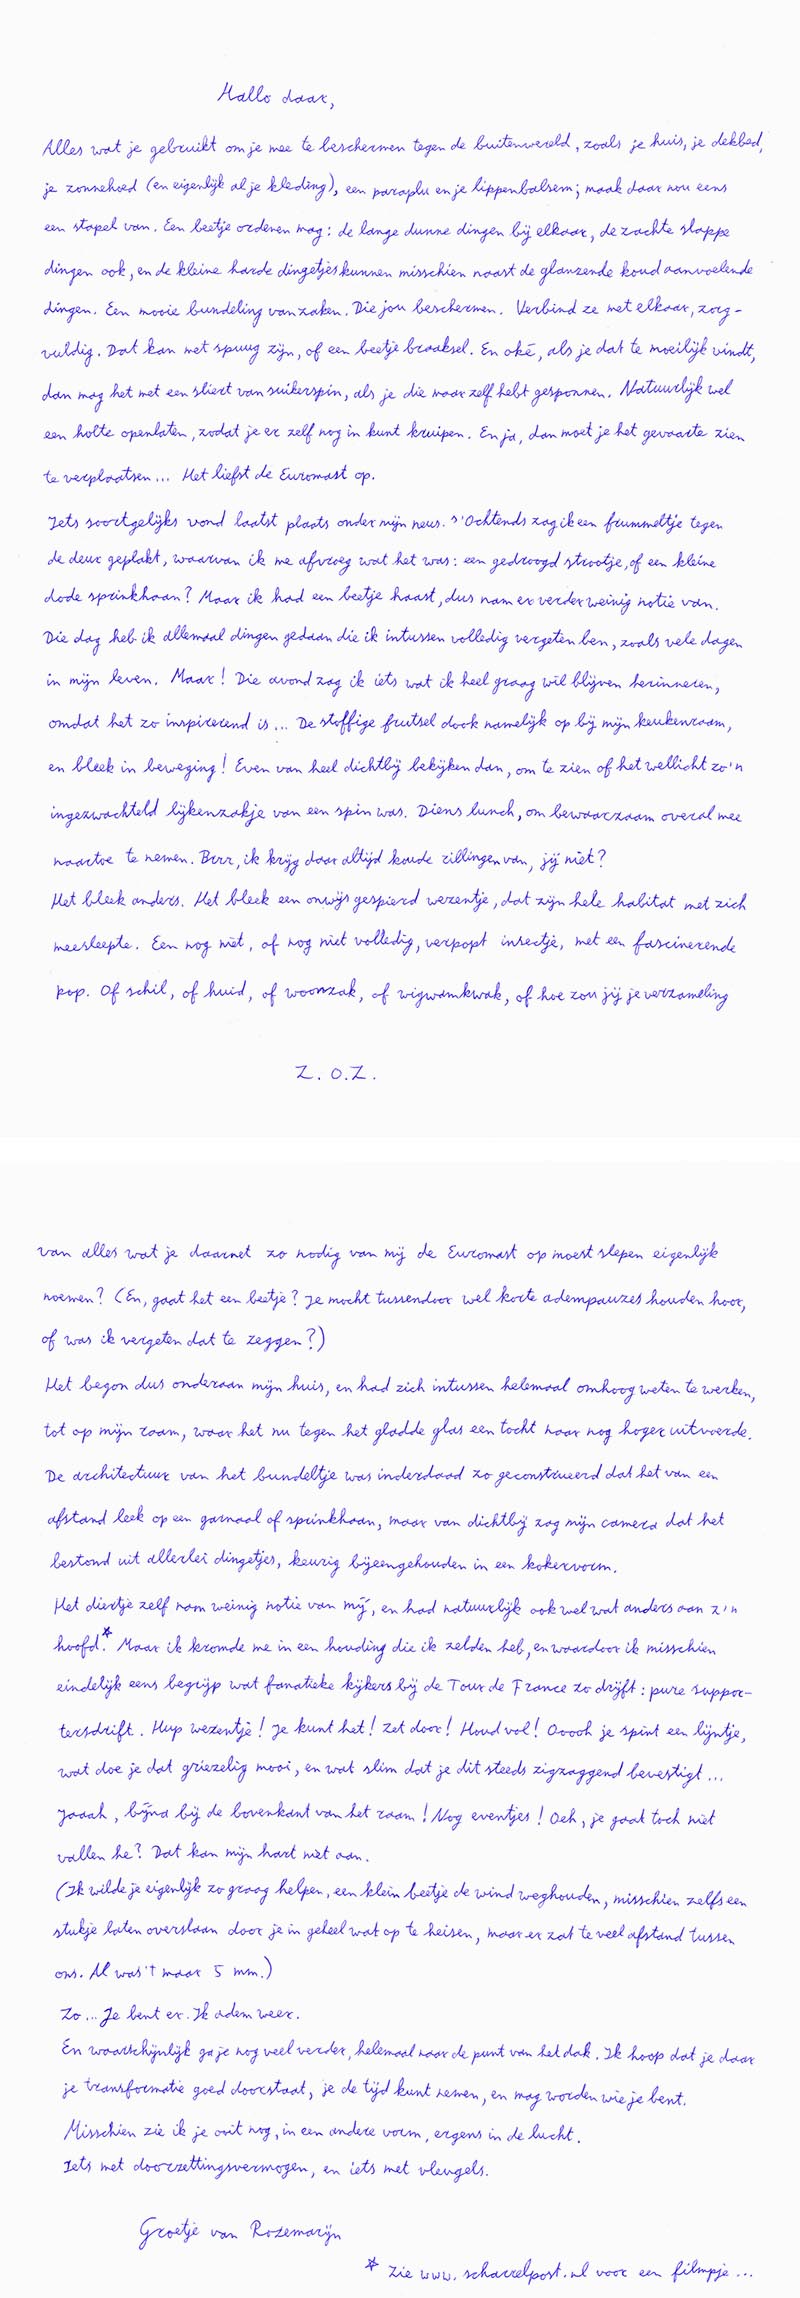 Hallo daar,
Alles wat je gebruikt om je mee te beschermen tegen de buitenwereld, zoals je huis, je dekbed,
je zonnehoed (en eigenlijk al je kleding), een paraplu en je lippenbalsem; maak daar nou eens
een stapel van. Een beetje ordenen mag: de lange dunne dingen bij elkaar, de zachte slappe
dingen ook, en de kleine harde dingetjes kunnen misschien naast de glanzende koud aanvoelende
dingen. Een mooie bundeling van zaken. Die jou beschermen. Verbind ze met elkaar, zorg-
vuldig. Dat kan met spuug zijn, of een beetje braaksel. En oké, als je dat te moeilijk vindt,
dan mag het met een sliert van suikerspin, als je die maar zelf hebt gesponnen. Natuurlijk wel
een holte openlaten, zodat je er zelf nog in kunt kruipen. En ja, dan moet je het gevaarte zien
te verplaatsen... Het liefst de Euromast op.
Iets soortgelijks vond laatst plaats onder mijn neus. 's Ochtends zag ik een frummeltje tegen
de deur geplakt, waarvan ik me afvroeg wat het was: een gedroogd strootje, of een kleine
dode sprinkhaan? Maar ik had een beetje haast, dus nam er verder weinig notie van.
Die dag heb ik allemaal dingen gedaan die ik intussen volledig vergeten ben, zoals vele dagen
in mijn leven. Maar! Die avond zag ik iets wat ik heel graag wil blijven herinneren,
omdat het zo inspirerend is... De stoffige frutsel dook namelijk op bij mijn keukenraam,
en bleek in beweging! Even van heel dichtbij bekijken dan, om te zien of het wellicht zo'n
ingezwachteld lijkenzakje van een spin was. Diens lunch, om bewaarzaam overal mee
naartoe te nemen. Brrr, ik krijg daar altijd koude rillingen van, jij niet?
Het bleek anders. Het bleek een onwijs gespierd wezentje, dat zijn hele habitat met zich
meesleepte. Een nog niet, of nog niet volledig, verpopt insectje, met een fascinerende
pop. Of schil, of huid, of woonzak, of wigwamkwak, of hoe zou jij je verzameling
Z.O.Z.
van alles wat je daarnet zo nodig van mij de Euromast op moest slepen eigenlijk
noemen? (En, gaat het een beetje? Je mocht tussendoor wel korte adempauzes houden hoor,
of was ik vergeten dat te zeggen?)
Het begon dus onderaan mijn huis, en had zich intussen helemaal omhoog weten te werken,
tot op mijn raam, waar het nu tegen het gladde glas een tocht naar nog hoger uitvoerde.
De architectuur van het bundeltje was inderdaad zo geconstrueerd dat het van een
afstand leek op een garnaal of sprinkhaan, maar van dichtbij zag mijn camera dat het
bestond uit allerlei dingetjes, keurig bijeengehouden in een kokervorm.
Het diertje zelf nam weinig notie van mij, en had natuurlijk ook wel wat anders aan z'n
hoofd.* Maar ik kromde me in een houding die ik zelden heb, en waardoor ik misschien
eindelijk eens begrijp wat fanatieke kijkers bij de Tour de France zo drijft: pure suppor-
tersdrift. Hup wezentje! Je kunt het! Zet door! Houd vol! Ooooh je spint een lijntje,
wat doe je dat griezelig mooi, en wat slim dat je dit steeds zigzaggend bevestigt...
Jaaah, bijna bij de bovenkant van het raam! Nog eventjes! Oeh, je gaat toch niet
vallen he? Dat kan mijn hart niet aan.
(Ik wilde je eigenlijk zo graag helpen, een klein beetje de wind weghouden, misschien zelfs een
stukje laten overslaan door je in geheel wat op te heisen, maar er zat te veel afstand tussen
ons. Al was 't maar 5 mm.)
Zo... Je bent er. Ik adem weer.
En waarschijnlijk ga je nog veel verder, helemaal naar de punt van het dak. Ik hoop dat je daar
je transformatie goed doorstaat, je de tijd kunt nemen, en mag worden wie je bent.
Misschien zie ik je ooit nog, in een andere vorm, ergens in de lucht.
Iets met doorzettingsvermogen, en iets met vleugels.
Groetje van Rozemarijn
* Zie www.scharrelpost.nl voor een filmpje...